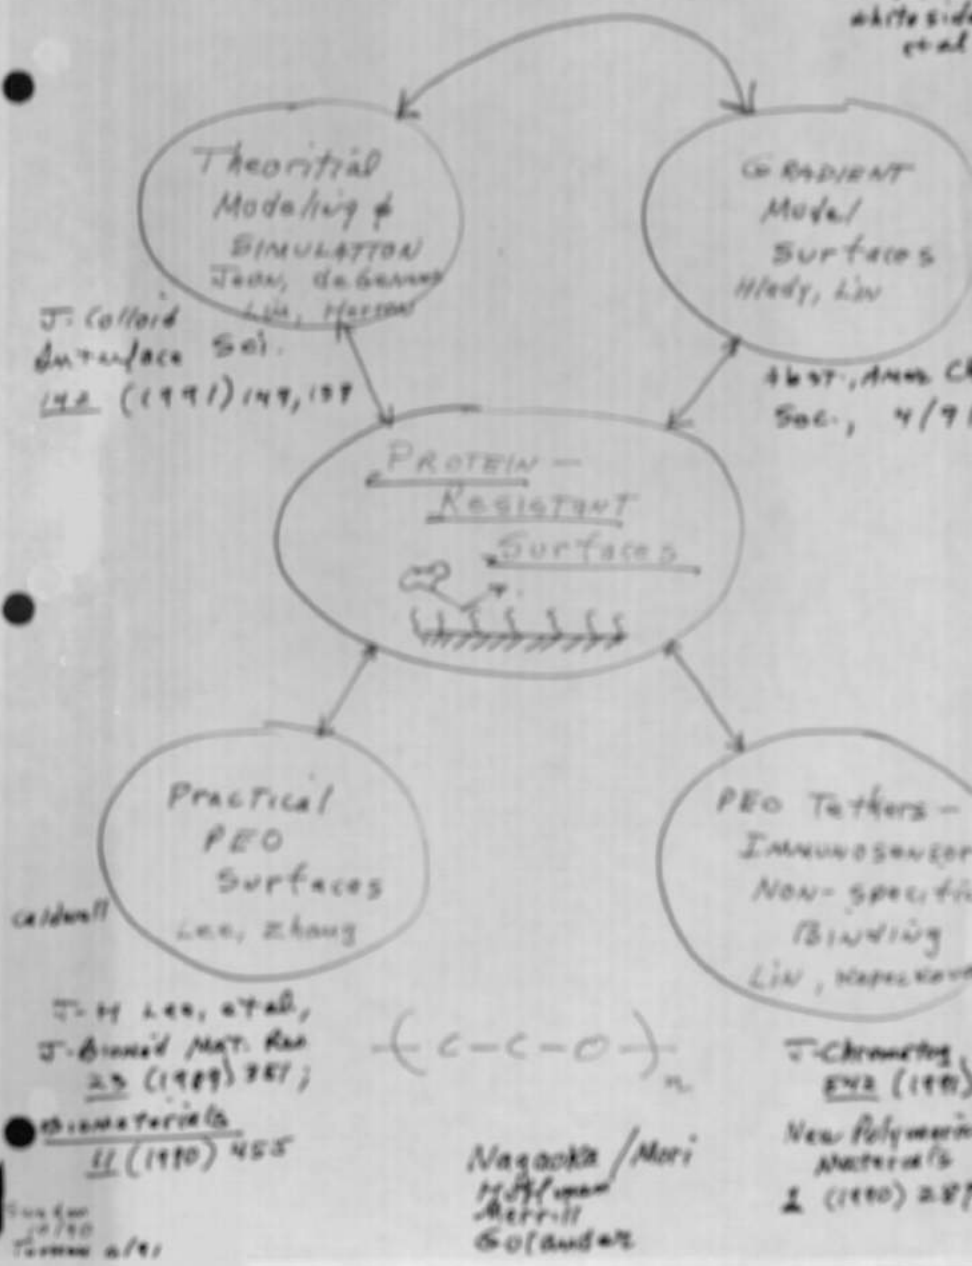 whiteside
et al
Theoritial
Modeling &
SIMULATION
Jeon, de Gennes
Lin,
GRADIENT
Model
Surfaces
Hlady, Lin
J. Colloid
Interface Sci.
142 (1991) 149, 159
Abst., Amer Ch
Soc., 4/91
PROTEIN -
RESISTANT
Surfaces
Practical
PEO
Surfaces
Lee, Zhang
Caldwell
PEO Tethers -
IMMUNOSENSOR
NON-specific
Binding
Lin,
J-H Lee, et al,
J. Biomed Mat. Res
23 (1989) 351;
Biomaterials
11 (1990) 455
-( C-C-O )-n
J-Chromatog,
542 (1991)
New Polymeric
Materials
Nagaoka / Mori
Hoffman
Merrill
Golander